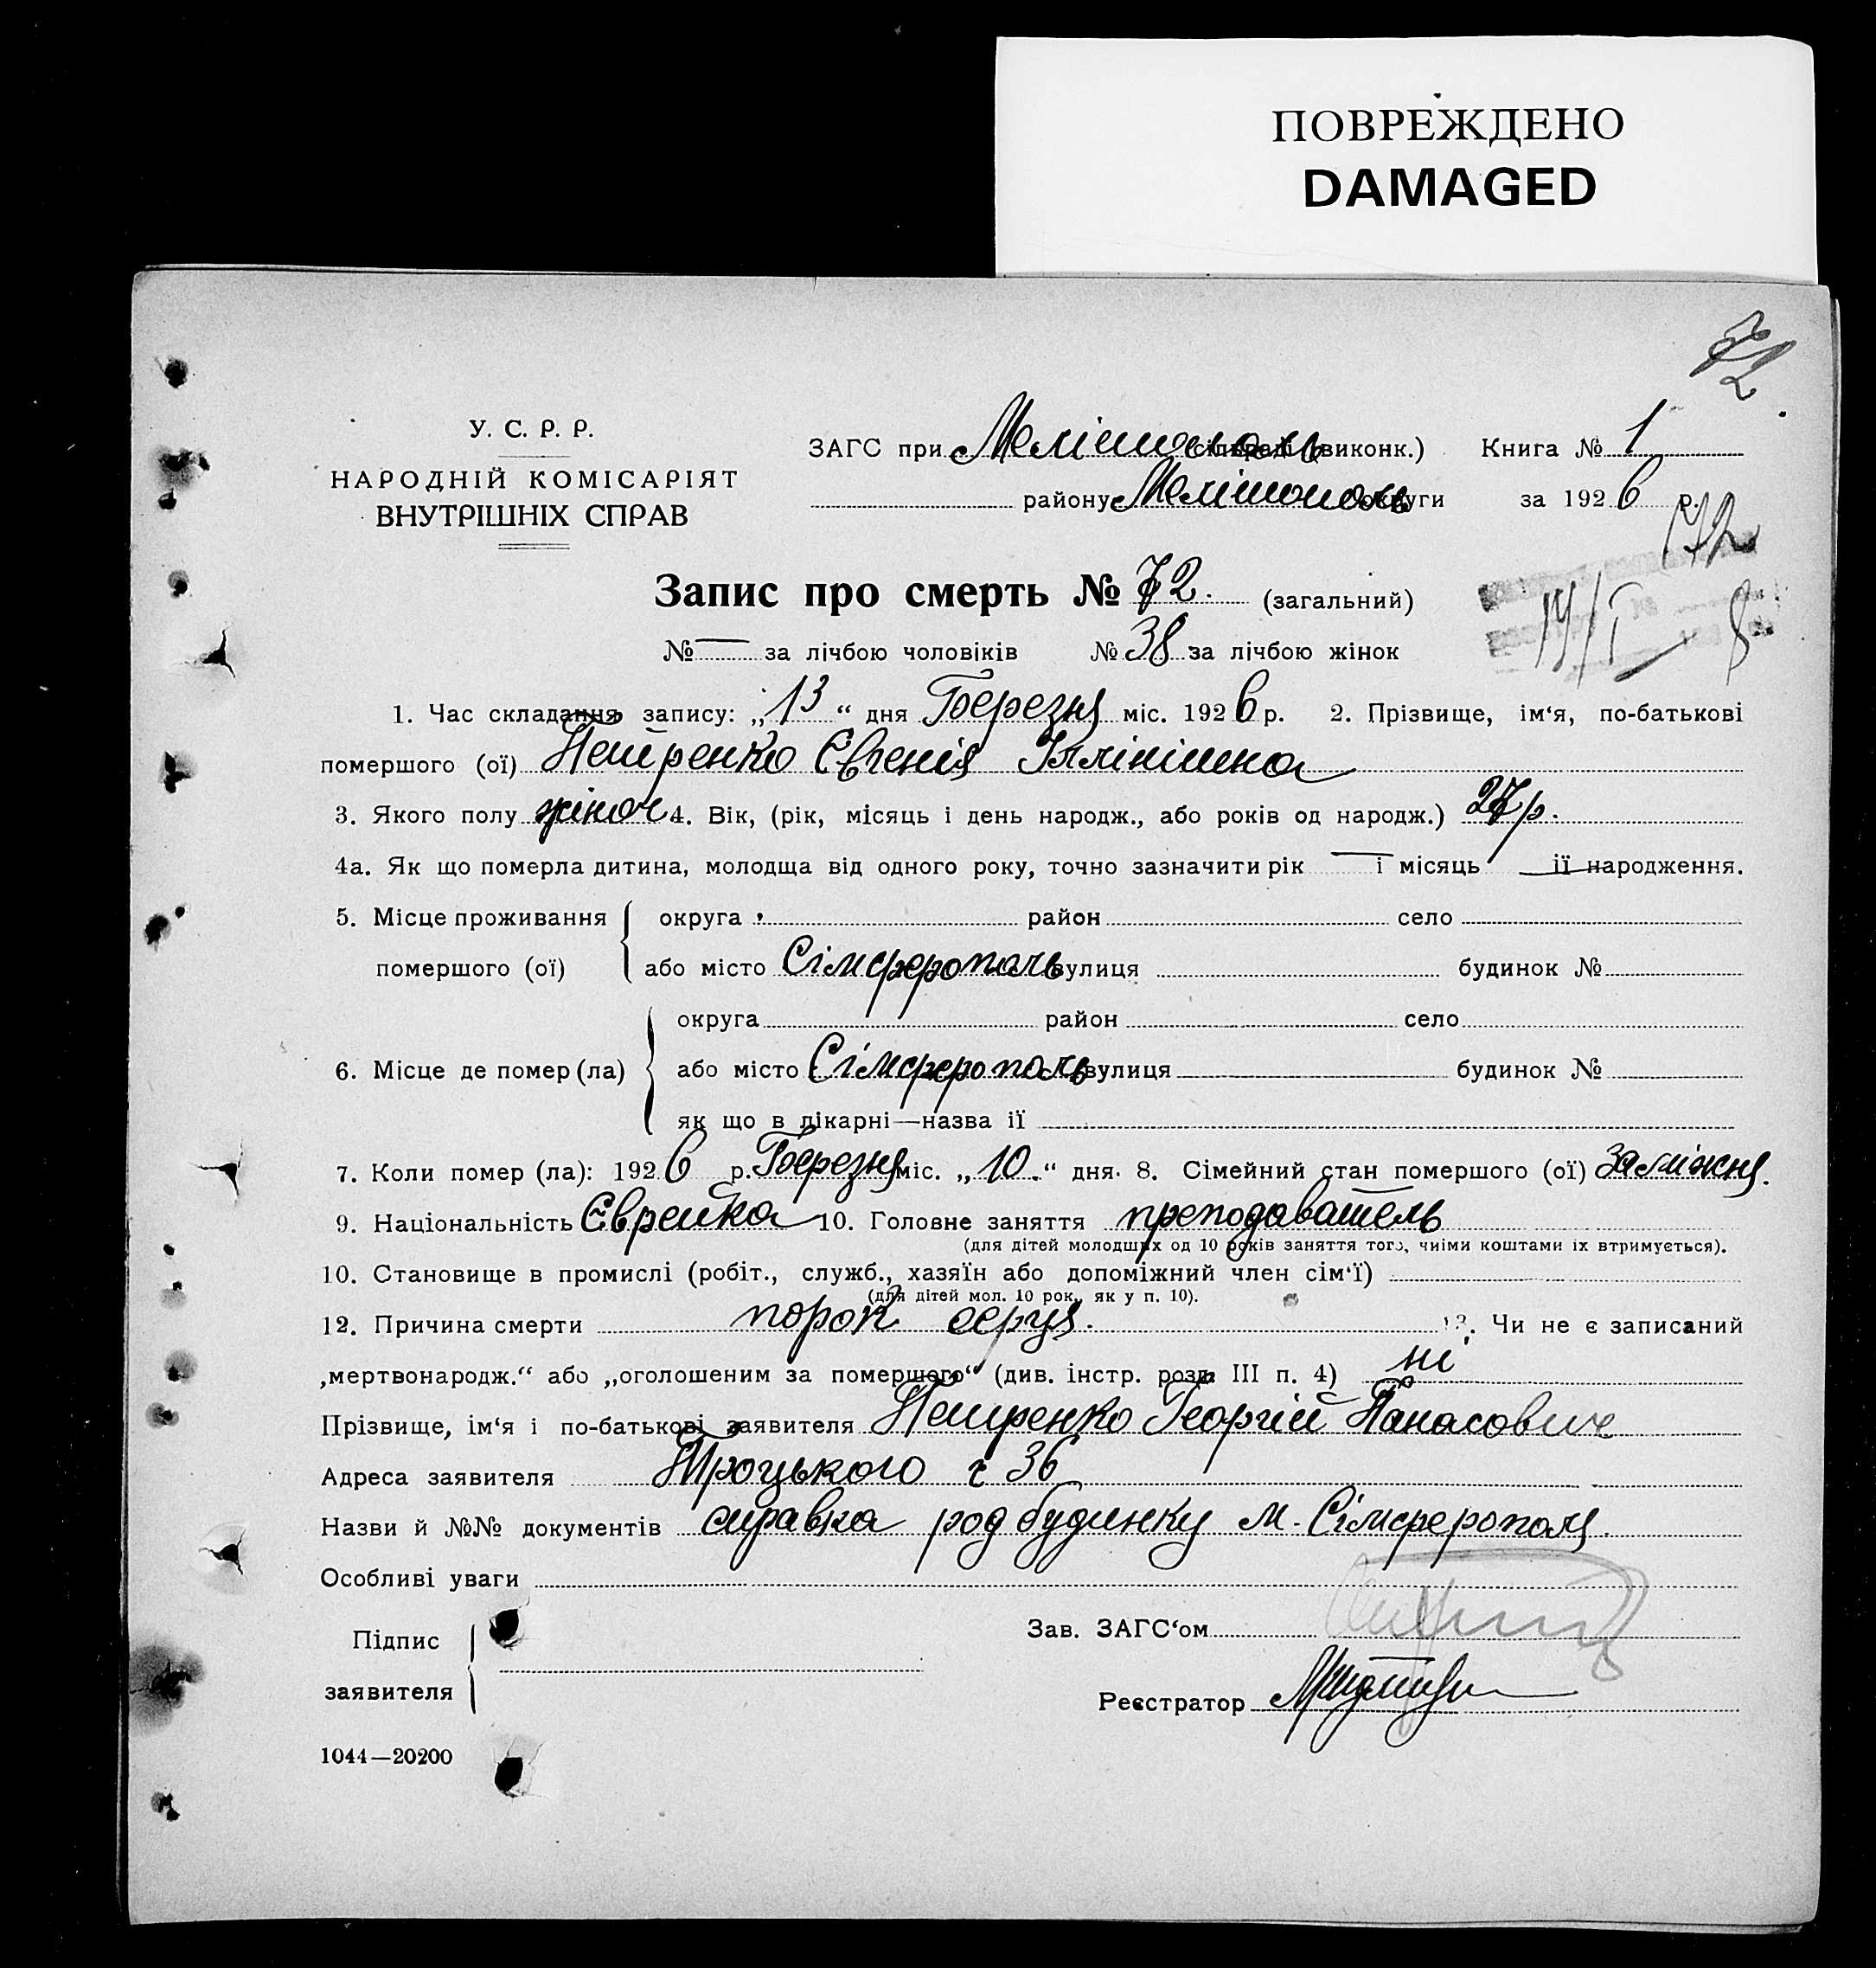 ПОВРЕЖДЕНО
DAMAGED
72
У. С. Р. Р.
НАРОДНІЙ КОМІСАРІЯТ
ВНУТРІШНІХ СПРАВ
ЗАГС при Мелітополь сільраді (виконк.) Книга № 1
району Мелітополь округи за 1926 р.
72
Запис про смерть № 72. (загальний)
№ — за лічбою чоловіків № 38 за лічбою жінок
1. Час складання запису: „13“ дня Березня міс. 1926 р. 2. Прізвище, ім‘я, по-батькові
помершого (ої) Петренко Євгенія
3. Якого полу жіноч 4. Вік, (рік, місяць і день народж., або років од народж.) 27 р.
4а. Як що померла дитина, молодща від одного року, точно зазначити рік — і місяць — ії народження.
5. Місце проживання округа район село
помершого (ої) або місто Сімферополь вулиця будинок №
округа район село
6. Місце де помер (ла) або місто Сімферополь вулиця будинок №
як що в лікарні—назва ії
7. Коли помер (ла): 1926 р. Березня міс. „10.“ дня. 8. Сімейний стан помершого (ої) заміжня.
9. Національність Єврейка 10. Головне заняття преподаватель
(для дітей молодших од 10 років заняття того, чиїми коштами їх втримується).
10. Становище в промислі (робіт., служб., хазяїн або допоміжний член сім‘ї)
(для дітей мол. 10 рок., як у п. 10).
12. Причина смерти порок серця. 13. Чи не є записаний
„мертвонародж.“ або „оголошеним за помершого“ (див. інстр. розд. III п. 4) ні
Прізвище, ім‘я і по-батькові заявителя Петренко Георгій Панасович
Адреса заявителя Троцького ч 36
Назви й №№ документів справка род будинку м. Сімферополя.
Особливі уваги
Підпис
заявителя
Зав. ЗАГС‘ом
Реєстратор
1044—20200